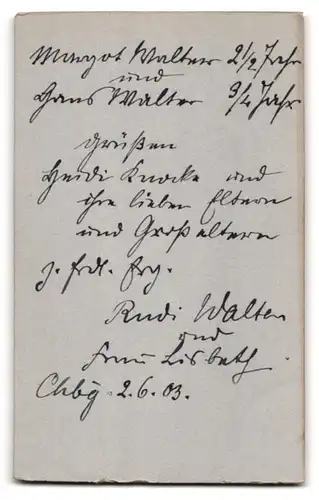 Margot Walter 2 1/2 Jahr
und
Hans Walter 3/4 Jahr
grüßen
Heidi Knocke und
ihre lieben Eltern
und Großeltern
z. frdl. Erg.
Rudi Walter
und
Frau Lisbeth.
Chbg. 2.6.03.